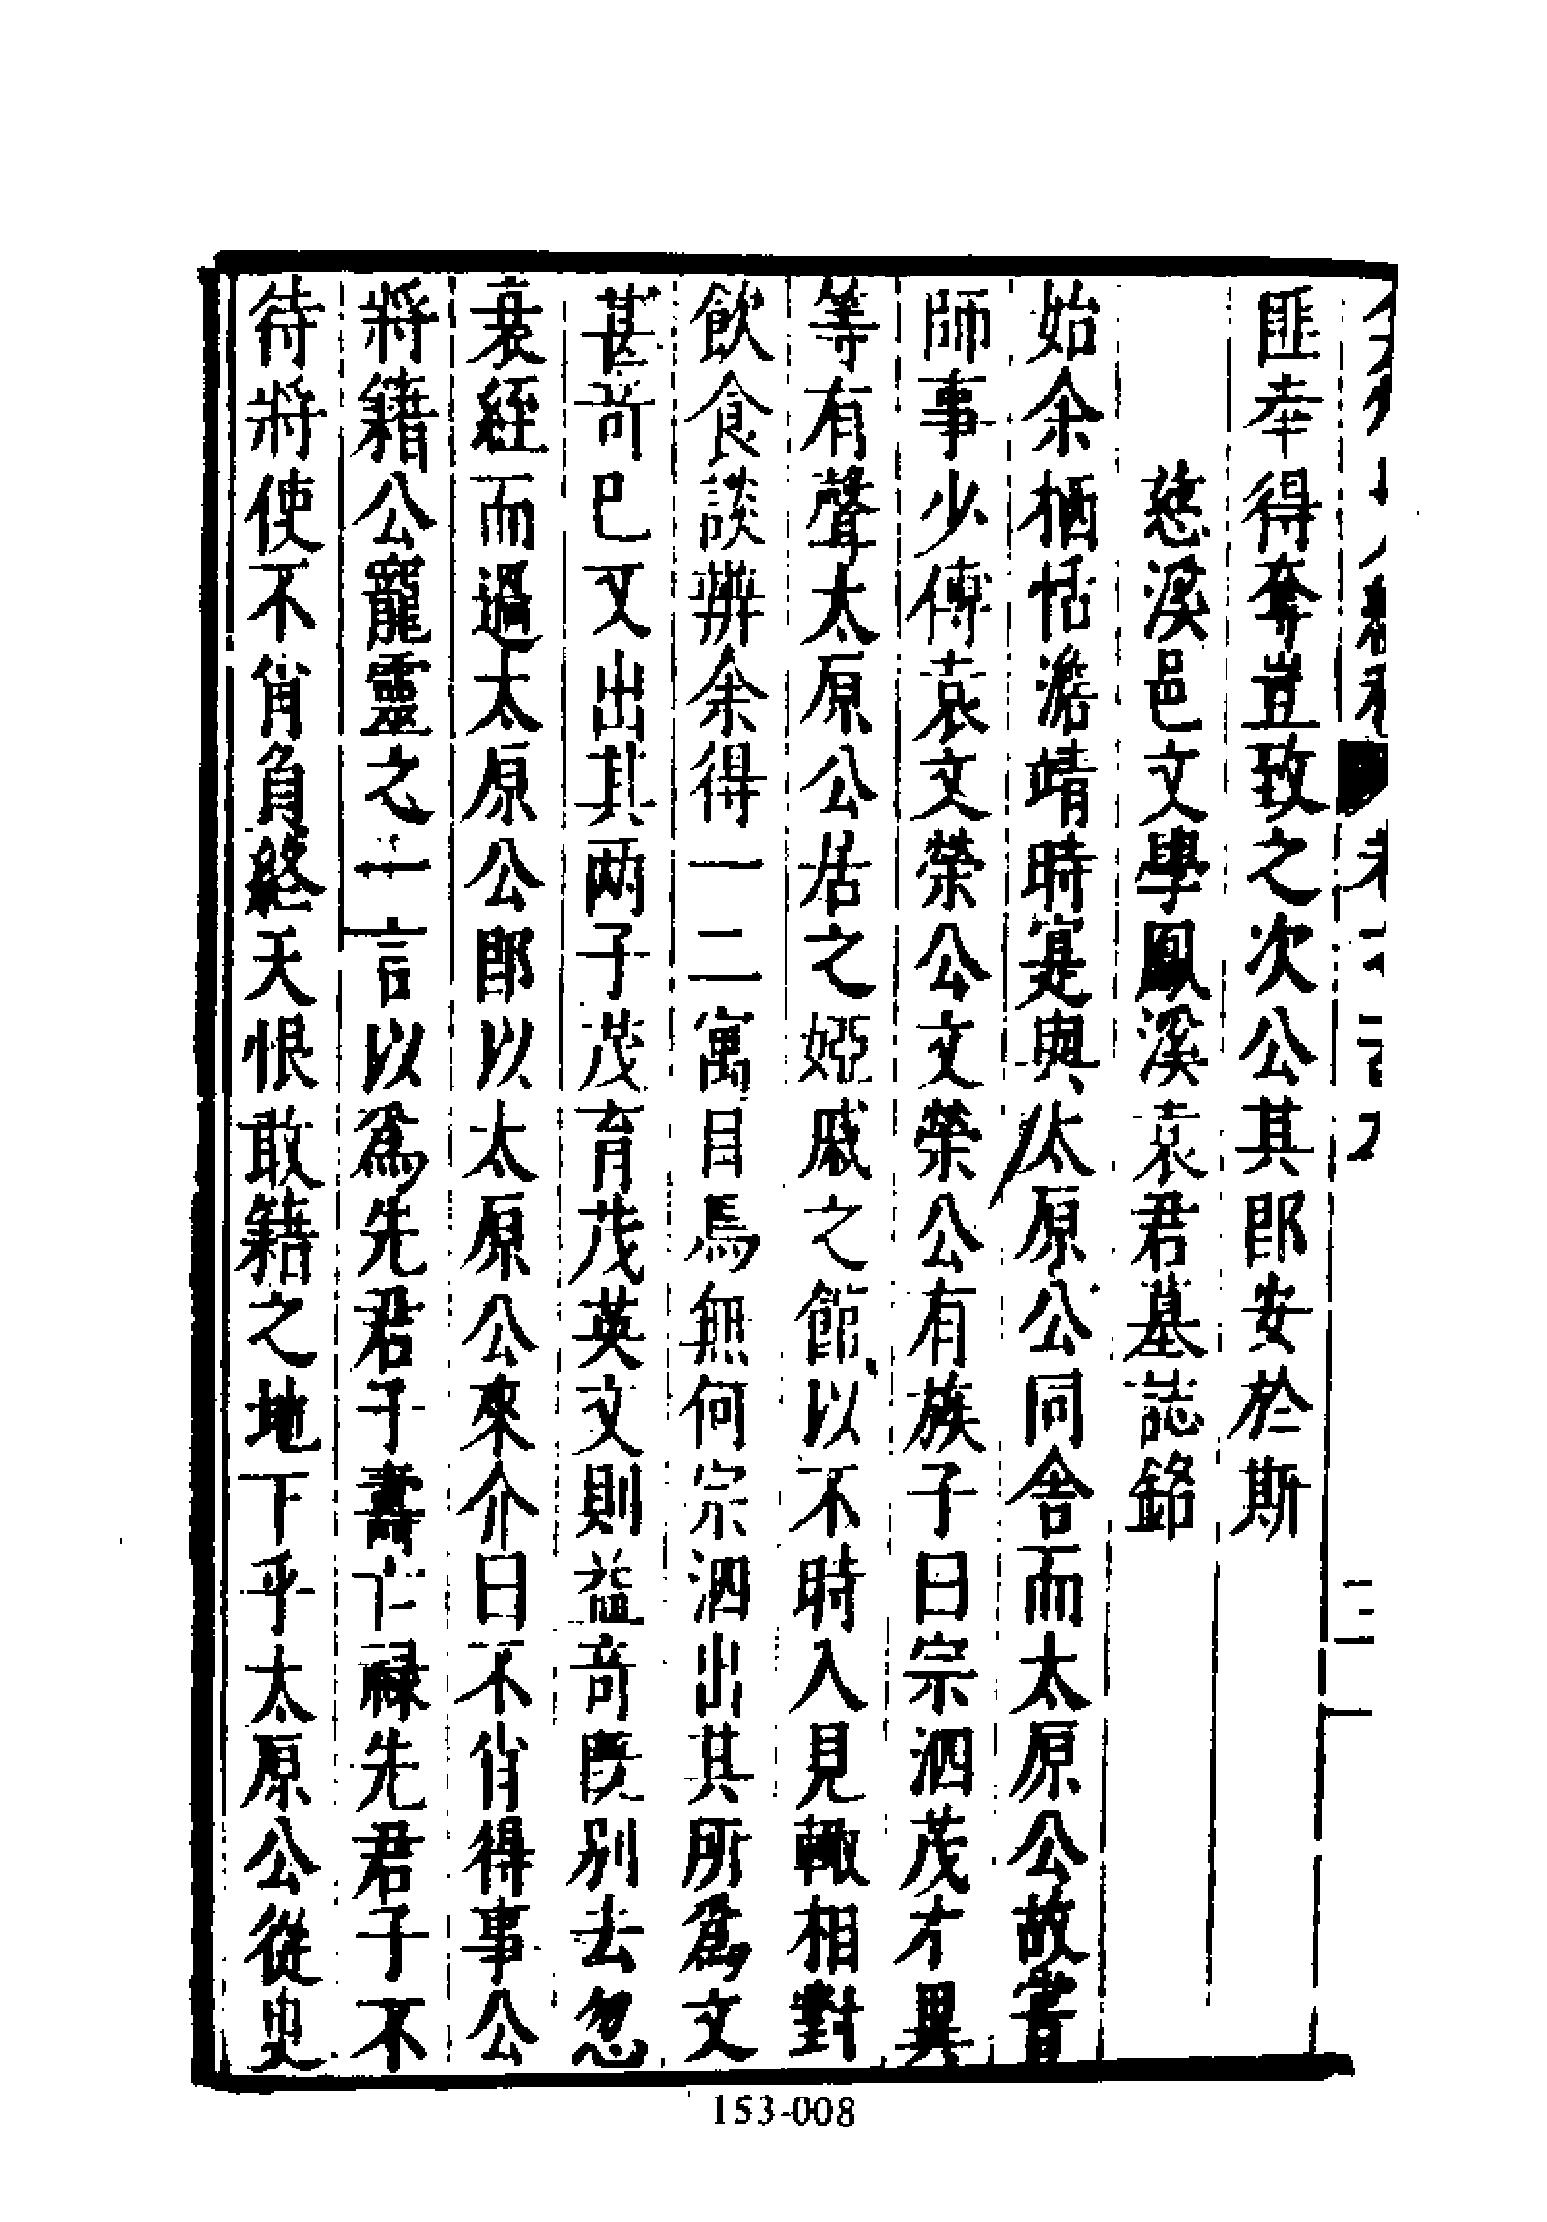 匪幸得奪豈致之次公其即安於斯
慈溪邑文學鳳溪袁君墓誌銘
始余栖恬澹靖時寔與太原公同舍而太原公故嘗
師事少傅袁文榮公文榮公有族子曰宗泗茂才異
等有聲太原公居之婭戚之館以不時入見輙相對
飲食談辨余得一二寓目焉無何宗泗出其所爲文
甚竒已又出其兩子茂育茂英文則益竒既別去忽
衰絰而過太原公即以太原公來介曰不肖得事公
將籍公寵靈之一言以爲先君子壽亡祿先君子不
待將使不肖負終天恨敢籍之地下乎太原公從臾
153-008